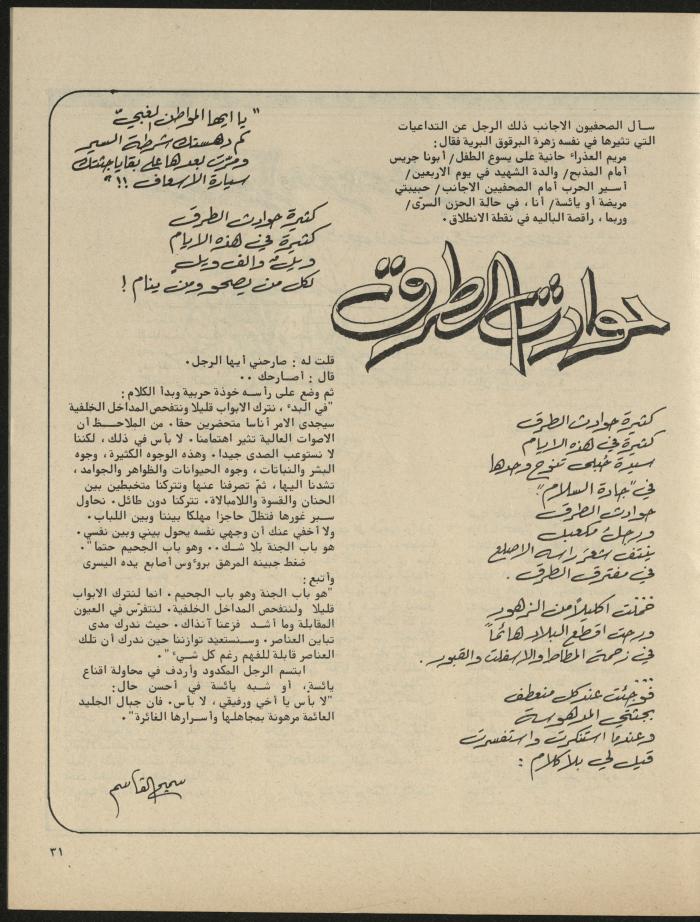 سأل الصحفيون الاجانب ذلك الرجل عن التداعيات
التي تثيرها في نفسه زهرة البرقوق البرية فقال:
مريم العذراء حانية على يسوع الطفل/ أبونا جريس
أمام المذبح/ والدة الشهيد في يوم الاربعين/
أسير الحرب أمام الصحفيين الاجانب/ حبيبتي
مريضة أو يائسة/ أنا، في حالة الحزن السرّى/
وربما، راقصة الباليه في نقطة الانطلاق.
حوادث الطرق
كثيرة حوادث الطرق
كثيرة في هذه الايام
سيدة حُبلى تنوح وحدها
في "جادة السلام"
حوادث الطرق
ورجلٌ مكعبل
ينتف شعرَ راسه الاصلع
في مفترق الطرق.
حملت اكليلاً من الزهور
ورحت اقطع البلاد هائماً
في زحمة المطاط والاسفلت والقبور.
...
فوجئت عند كل منعطف
بجثتي المدهوسة
وعندما استنكرت واستفسرت
قيل لي بلا كلام:
"يا ايها المواطن الغبيّ
كم دهستك شرطة السير
ومرّت بعدها على بقايا جثتك
سيارة الاسعاف !!"
كثيرة حوادث الطرق
كثيرة في هذه الايام
ويلٌ والف ويلٍ
لكل من يصحو ومن ينام!
قلت له: صارحني أيها الرجل.
قال: أصارحك ..
ثم وضع على رأسه خوذة حربية وبدأ الكلام:
"في البدء، نترك الابواب قليلا ونتفحص المداخل الخلفية
سيجدى الامر أناسا متحضرين حقا. من الملاحظ أن
الاصوات العالية تثير اهتمامنا. لا بأس في ذلك، لكننا
لا نستوعب الصدى جيدا. وهذه الوجوه الكثيرة، وجوه
البشر والنباتات، وجوه الحيوانات والظواهر والجوامد،
تشدنا اليها، ثمّ تصرفنا عنها وتتركنا متخبطين بين
الحنان والقسوة واللامبالاة. تتركنا دون طائل. نحاول
سبر غورها فتظلّ حاجزا مهلكا بيننا وبين اللباب.
ولا أخفي عنك أن وجهي نفسه يحول بيني وبين نفسي.
هو باب الجنة بلا شك.. وهو باب الجحيم حتما".
ضغط جبينه المرهق بروءوس أصابع يده اليسرى
وأتبع:
"هو باب الجنة وهو باب الجحيم. انما لنترك الابواب
قليلا ولنتفحص المداخل الخلفية. لنتفرّس في العيون
المقابلة وما أشد فزعنا آنذاك. حيث ندرك مدى
تباين العناصر. وسنستعيد توازننا حين ندرك أن تلك
العناصر قابلة للفهم رغم كل شيء".
ابتسم الرجل المكدود وأردف في محاولة اقناع
يائسة، أو شبه يائسة في أحسن حال:
"لا بأس يا أخي ورفيقي، لا بأس. فان جبال الجليد
العائمة مرهونة بمجاهلها وأسرارها الغائرة".
سميح القاسم
٣١